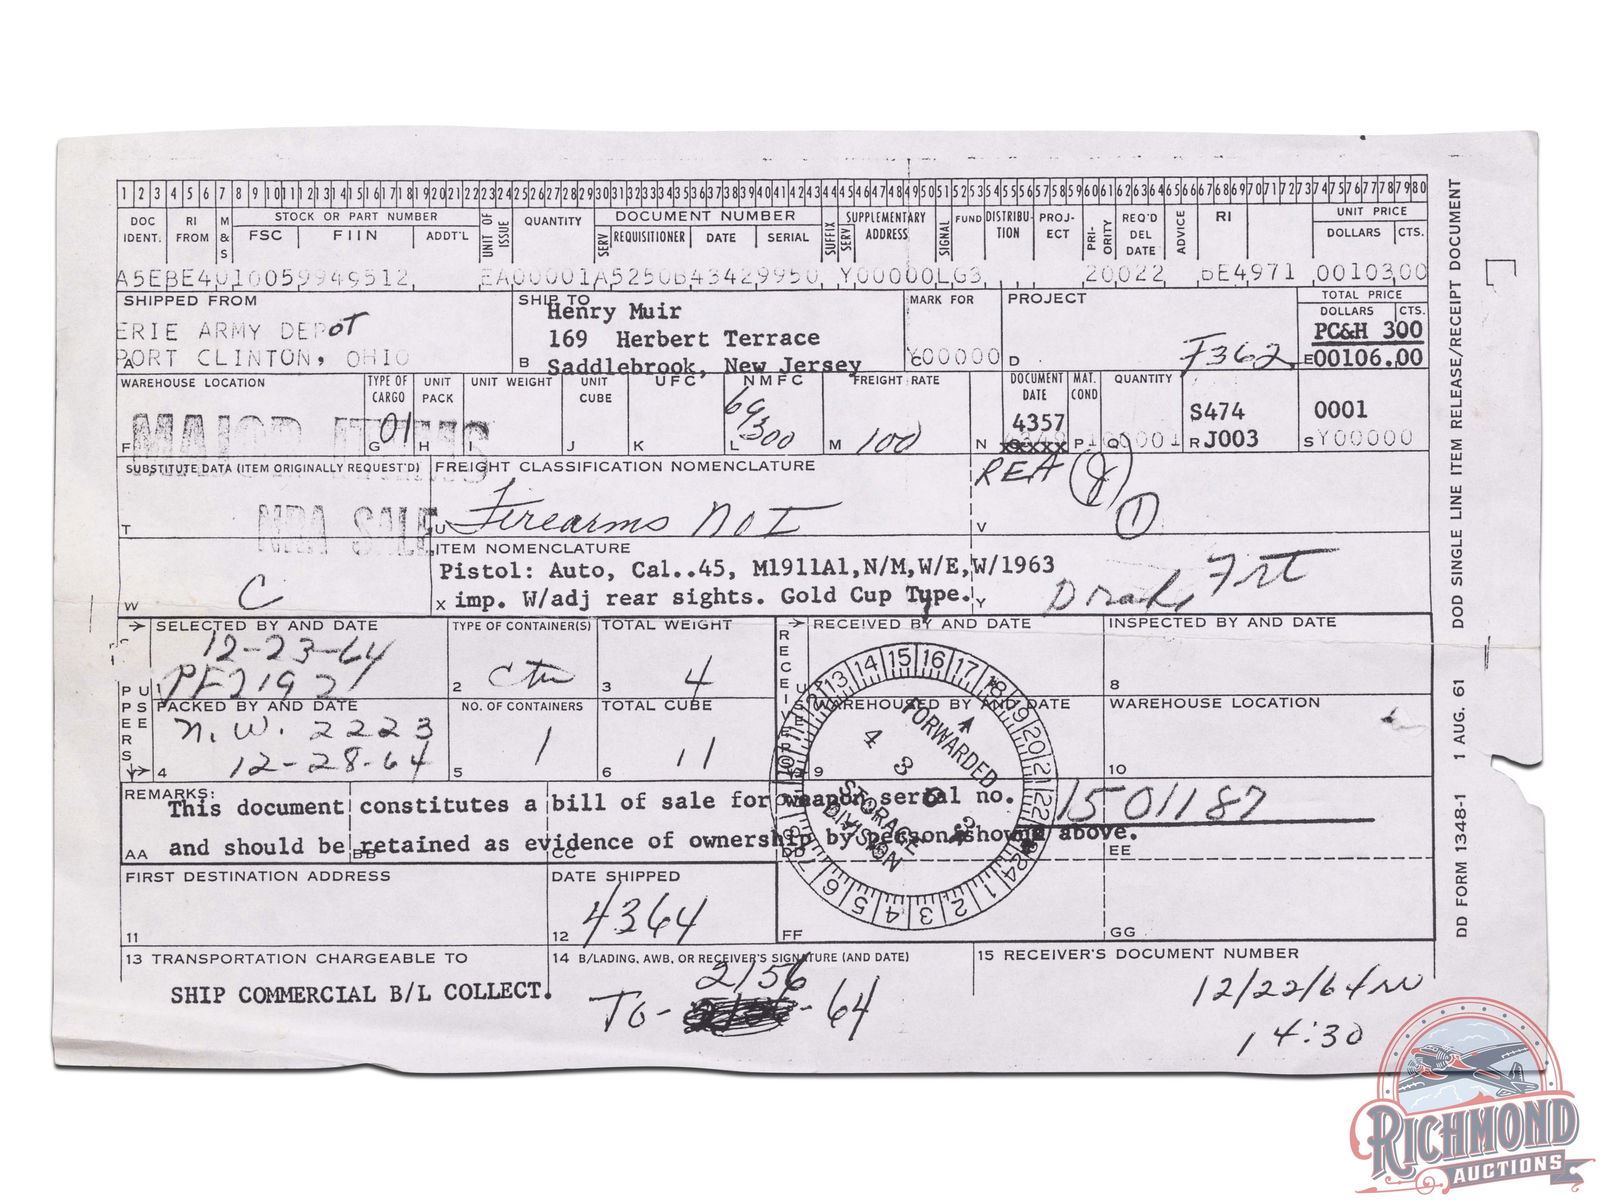 1 2 3 4 5 6 7 8 9 10 11 12 13 14 15 16 17 18 19 20 21 22 23 24 25 26 27 28 29 30 31 32 33 34 35 36 37 38 39 40 41 42 43 44 45 46 47 48 49 50 51 52 53 54 55 56 57 58 59 60 61 62 63 64 65 66 67 68 69 70 71 72 73 74 75 76 77 78 79 80
DOC IDENT. RI FROM M & S STOCK OR PART NUMBER FSC FIIN ADDT'L UNIT OF ISSUE QUANTITY DOCUMENT NUMBER SERV REQUISITIONER DATE SERIAL SUFFIX SERV SUPPLEMENTARY ADDRESS SIGNAL FUND DISTRIBU-TION PROJ-ECT PRI-ORITY REQ'D DEL DATE ADVICE RI UNIT PRICE DOLLARS CTS.
A5EBE4010059949512 EA00001A5250B43429950 Y00000LG3 20022 BE4971 0010300
SHIPPED FROM
ERIE ARMY DEPOT
A PORT CLINTON, OHIO
SHIP TO
Henry Muir
169 Herbert Terrace
B Saddlebrook, New Jersey
MARK FOR
C Y00000
PROJECT
D F362
TOTAL PRICE
DOLLARS CTS.
PC&H 300
E 00106.00
WAREHOUSE LOCATION TYPE OF CARGO UNIT PACK UNIT WEIGHT UNIT CUBE UFC NMFC FREIGHT RATE DOCUMENT DATE MAT. COND QUANTITY
MAJOR ITEMS
F G 01 H I J K L 69300 M 100 N 4357 P Q 00001
S474 0001
R J003 S Y00000
SUBSTITUTE DATA (ITEM ORIGINALLY REQUEST'D) FREIGHT CLASSIFICATION NOMENCLATURE
REA
NRA SALE
T U Firearms NOI V
1
ITEM NOMENCLATURE
Pistol: Auto, Cal..45, M1911A1,N/M,W/E,W/1963
W C X imp. W/adj rear sights. Gold Cup Type. Y Drake Frt
SELECTED BY AND DATE TYPE OF CONTAINER(S) TOTAL WEIGHT RECEIVED BY AND DATE INSPECTED BY AND DATE
12-23-64
1 PF2192 2 ctn 3 4 8
SUPPERS USE
RECEIVER
PACKED BY AND DATE NO. OF CONTAINERS TOTAL CUBE WAREHOUSED BY AND DATE WAREHOUSE LOCATION
N.W. 2223
4 12-28-64 5 1 6 11 9 10
FORWARDED
4 363
STORAGE DIVISION
REMARKS:
This document constitutes a bill of sale for weapon serial no. 1501187
AA and should be retained as evidence of ownership by person shown above.
BB CC DD EE
FIRST DESTINATION ADDRESS DATE SHIPPED
11 12 4364 FF GG
13 TRANSPORTATION CHARGEABLE TO 14 B/LADING, AWB, OR RECEIVER'S SIGNATURE (AND DATE) 15 RECEIVER'S DOCUMENT NUMBER
SHIP COMMERCIAL B/L COLLECT.
2156
To- -64
12/22/64
14:30
DD FORM 1348-1 1 AUG. 61 DOD SINGLE LINE ITEM RELEASE/RECEIPT DOCUMENT
RICHMOND
AUCTIONS